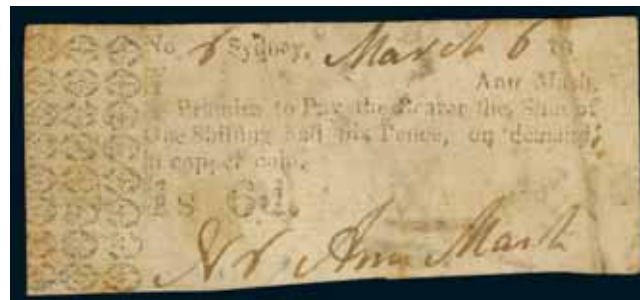 No 8 Sydney, March 6 18
Ann Mash,
Promises to Pay the Bearer the Sum of
One Shilling and Six Pence, on demand,
in copper coin.
S 6d.
No 8 Ann Mash